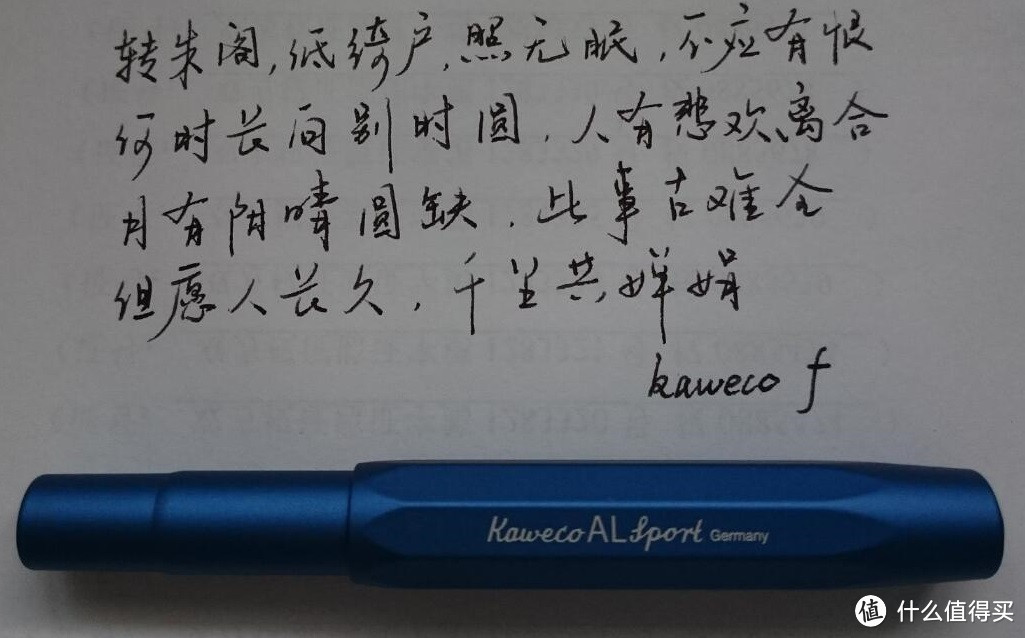 转朱阁,低绮户,照无眠,不应有恨
何时长向别时圆,人有悲欢、离合
月有阴晴圆缺,此事古难全
但愿人长久,千里共婵娟
kaweco f
Kaweco AL Sport Germany
值 什么值得买